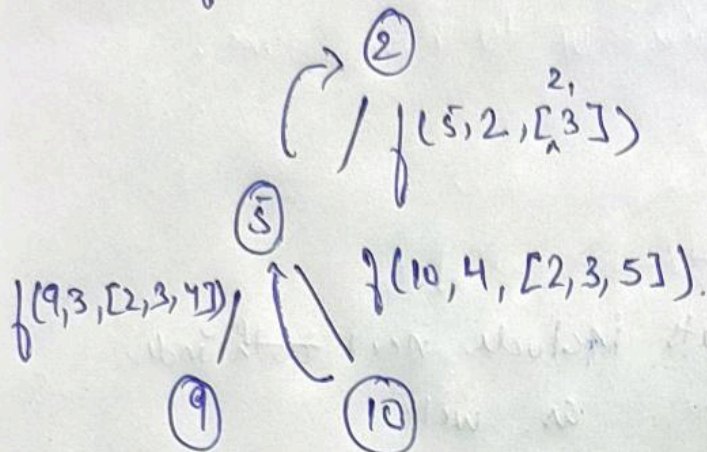 2
f(5,2,[2,3])
5
f(9,3,[2,3,4])
f(10,4,[2,3,5]).
9
10